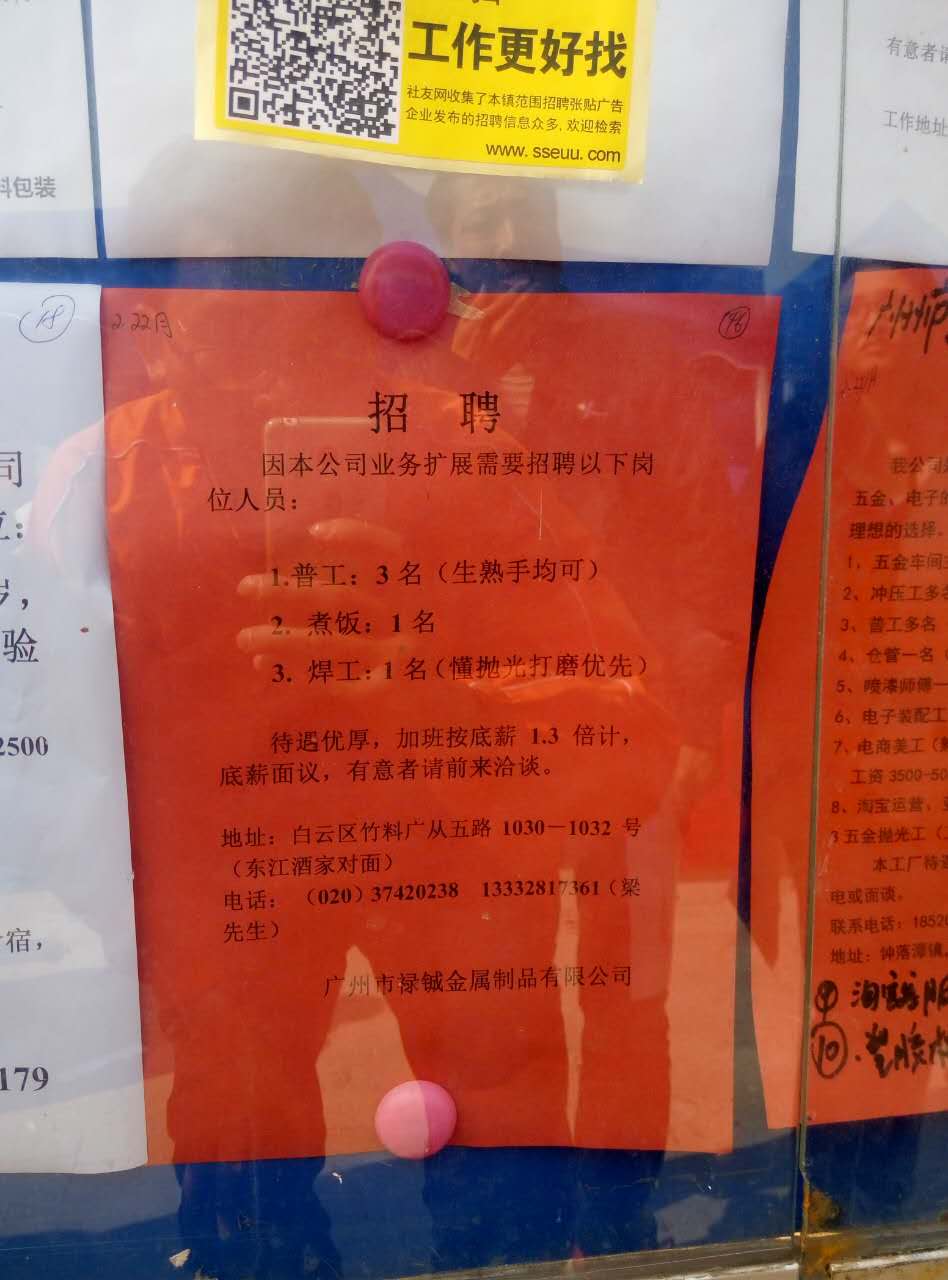 工作更好找
社友网收集了本镇范围招聘张贴广告
企业发布的招聘信息众多,欢迎检索
www.sseuu.com
有意者请
工作地址
料包装
18
2.22月
招 聘
因本公司业务扩展需要招聘以下岗
位人员：
1.普工：3名（生熟手均可）
2. 煮饭：1名
3. 焊工：1名（懂抛光打磨优先）
待遇优厚，加班按底薪 1.3 倍计，
底薪面议，有意者请前来洽谈。
地址：白云区竹料广从五路 1030－1032 号
（东江酒家对面）
电话：（020）37420238 13332817361（梁
先生）
广州市禄铖金属制品有限公司
司
岁，
验
2500
宿，
179
广州市
我公司
五金、电子的
理想的选择。
1、五金车间
2、冲压工多名
3、普工多名
4、仓管一名
5、喷漆师傅一
6、电子装配工
7、电商美工（
工资 3500-50
8、淘宝运营，
3五金抛光工（
本工厂待遇
电或面谈。
联系电话：1852
地址：钟落潭镇